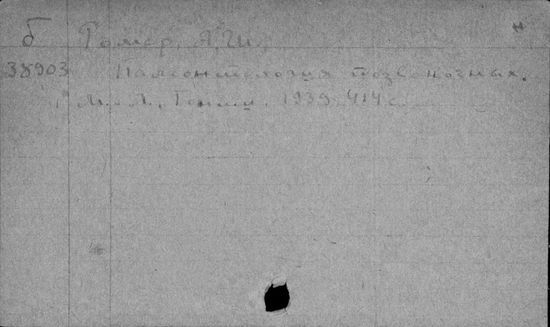 б Ромер, А.Ш.
38903 Палеонтология позвоночных.
М.-Л., 1939. 414 с.